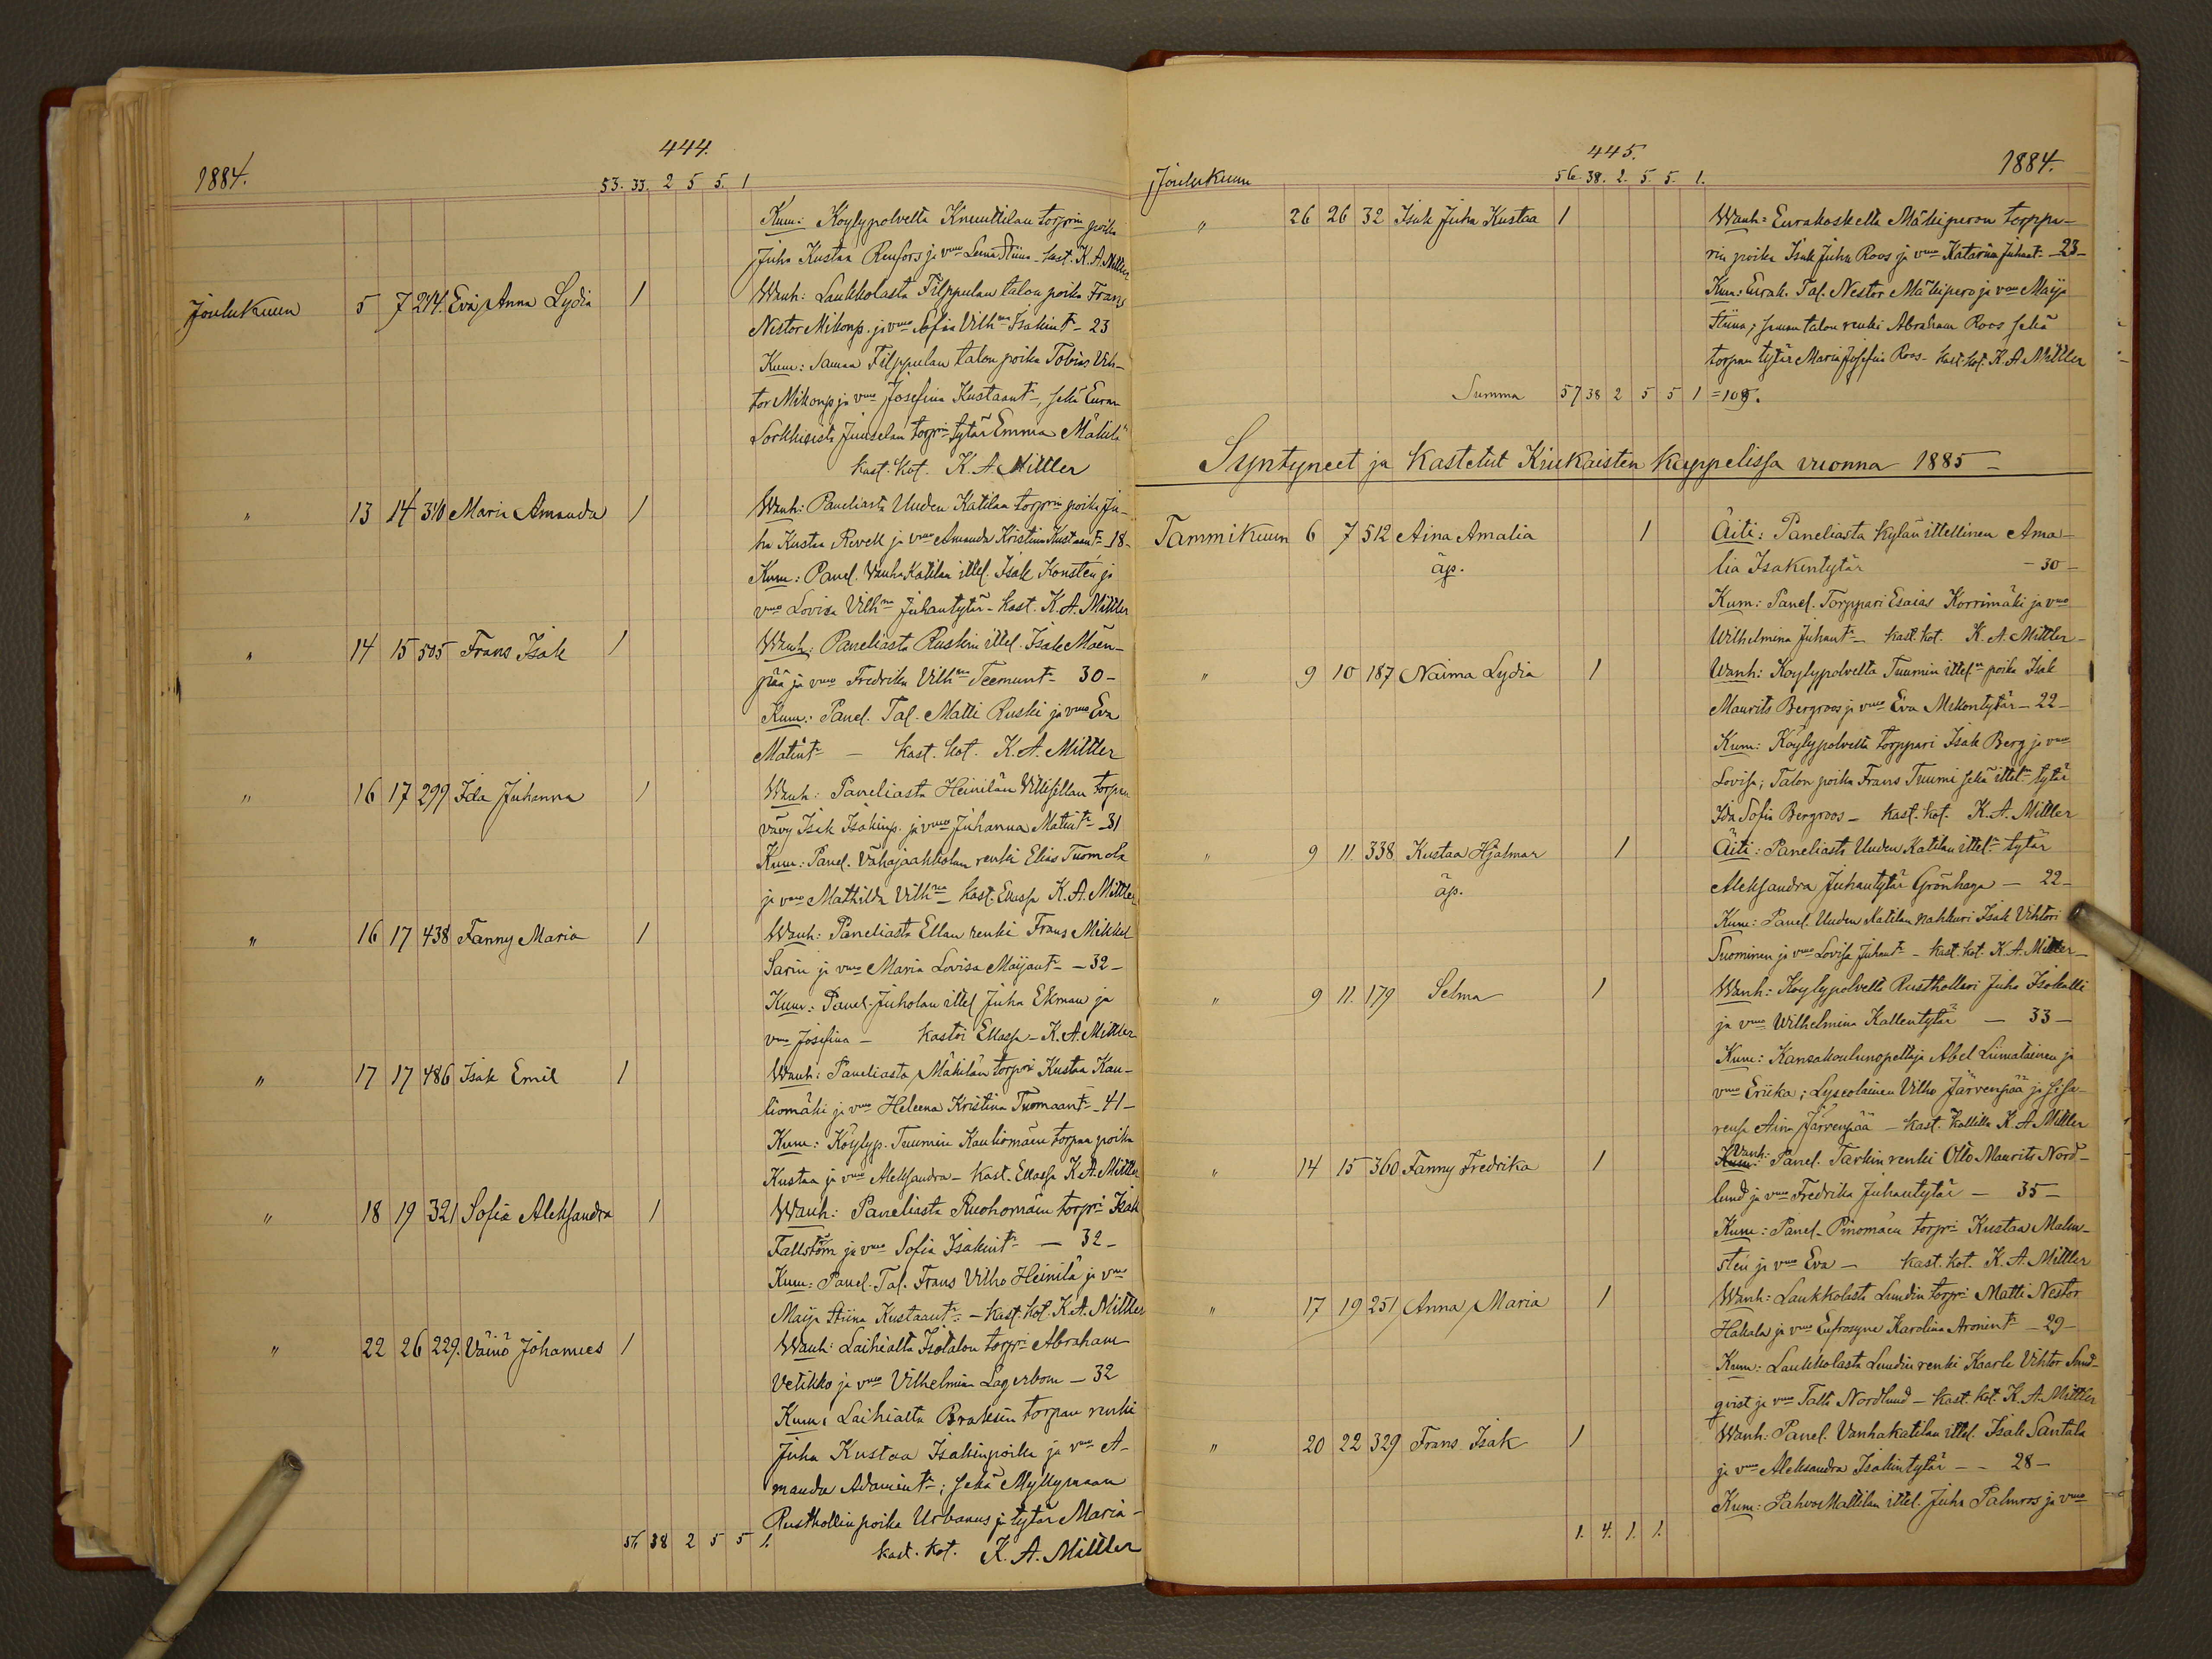 444.
1884.
53. 33. 2 5 5. 1
Kum: Köylypolvelta Knuuttilan torprin poika
Juho Kustaa Renfors ja vmo Leena Stiina - kast. K. A. Mittler
Joulukuun 5 7 244. Eva Anna Lydia 1 Wanh: Laukkolasta Filppulan talon poika Frans
Nestor Mikonp. ja vmo Sofia Vilhna Isakint - 23
Kum: Saman Filppulan talon poika Tobias Vih-
tor Mikonp ja vmo Josefina Kustaant, sekä Euran
Sorkkisista Juuselan torprin tytär Emma Mäkilä
kast. kot. K. A. Mittler
" 13 14 310 Maria Amanda 1 Wanh: Paneliasta Uuden Katilan torprin poika Ju-
ha Kustaa Revell ja vmo Amanda Kristiina Kustaant - 18 -
Kum: Panel. Vanha Katilan ittel. Isak Konstén ja
vmo Lovisa Vilhna Juhantytär - Kast. K. A. Mittler
" 14 15 505 Frans Isak 1 Wanh: Paneliasta Ruskin ittel. Isak Mäen-
pää ja vmo Fredrika Vilhna Teemunt - 30 -
Kum: Panel. Tal. Matti Ruski ja vmo Eva
Matint - Kast. kot. K. A. Mittler
" 16 17 299 Ida Juhanna 1 Wanh: Paneliasta Heinilän Villisillan torpan
vävy Isak Isakinp. ja vmo Juhanna Matint - 31
Kum: Panel. Vähäjaakkolan renki Elias Tuomola
ja vmo Mathilda Vilhna - kast. Ellassa K. A. Mittler
" 16 17 438 Fanny Maria 1 Wanh: Paneliasta Ellan renki Frans Mikkel
Sarin ja vmo Maria Lovisa Maijant - 32 -
Kum: Panel. Juholan ittel Juha Ekman ja
vmo Josefina - kastoi Ellassa - K. A. Mittler
" 17 17 486 Isak Emil 1 Wanh: Paneliasta Mäkilän torpri Kustaa Kau-
liomäki ja vmo Heleena Kristina Tuomaant - 41 -
Kum: Köylyp. Tuumin Kauliomäen torpan poika
Kustaa ja vmo Aleksandra - Kast. Ellassa K. A. Mittler
" 18 19 321 Sofia Aleksandra 1 Wanh: Paneliasta Ruohomäen torpri Isak
Fallström ja vmo Sofia Isakint - 32 -
Kum: Panel. Tal. Frans Vilho Heinilä ja vmo
Maija Stiina Kustaant: - Kast. kot. K. A. Mittler
" 22 26 229. Väinö Johannes 1 Wanh: Laihialta Isotalon torpri Abraham
Vetikko ja vmo Vilhelmina Lagerbom - 32
Kum: Laihialta Braksin torpan renki
Juha Kustaa Isakinpoika ja vmo A-
manda Adamint; sekä Myllymaan
Rusthollin poika Urbanus ja tytär Maria -
56 38 2 5 5 1. kast. kot. K. A. Mittler
445.
Joulukuun 56. 38. 2. 5. 5. 1. 1884.
" 26 26 32 Isak Juha Kustaa 1 Wanh: Eurakoskelta Mäkiperon torppa-
rin poika Isak Juha Roos ja vmo Katariina Juhant - 23 -
Kum: Eurak. Tal. Nestor Mäkipero ja vmo Maija
Stiina; saman talon renki Abraham Roos sekä
torpan tytär Maria Josefin Roos - kast. kot. K. A. Mittler
Summa 57 38 2 5 5 1 = 108.
Syntyneet ja Kastetut Kiukaisten kappelissa vuonna 1885 -
Tammikuun 6 7 512 Aina Amalia 1 Äiti: Paneliasta Kylän ittellinen Ama-
äp. lia Isakintytär - 30 -
Kum: Panel. Torppari Esaias Korrimäki ja vmo
Wilhelmina Juhant - kast. kot. K. A. Mittler -
" 9 10 187 Naima Lydia 1 Wanh: Köylypolvelta Tuumin ittel. poika Isak
Maurits Bergroos ja vmo Eva Mikontytär - 22 -
Kum: Köylypolvelta torppari Isak Berg ja vmo
Lovisa; Talon poika Frans Tuumi sekä ittel. tytär
Ida Sofia Bergroos - kast. kot. K. A. Mittler
" 9 11. 338 Kustaa Hjalmar 1 Äiti: Paneliasta Uuden Katilan ittel. tytär
äp. Aleksandra Juhantytär Grönhaga - 22 -
Kum: Panel. Uuden Katilan nahkuri Isak Vihtori
Suominen ja vmo Lovisa Juhant - kast. kot. K. A. Mittler -
" 9 11. 179 Selma 1 Wanh: Köylypolvelta Rusthollari Juho Isokalli
ja vmo Wilhelmina Kallentytär - 33 -
Kum: Kansakoulunopettaja Abel Liimatainen ja
vmo Eriika; Lyseolainen Vilho Järvenpää ja sisa-
rensa Aina Järvenpää - kast. Kallilla K. A. Mittler
" 14 15 360 Fanny Fredrika 1 Wanh: Panel. Tarkin renki Otto Maurits Nord-
lund ja vmo Fredrika Juhantytär - 35 -
Kum: Panel. Pinomäen torpri Kustaa Malm-
stén ja vmo Eva - kast. kot. K. A. Mittler
" 17 19 251 Anna Maria 1 Wanh: Laukkolasta Lundin torpri Matti Nestor
Hakala ja vmo Eufrosyne Karolina Aronint - 29 -
Kum: Laukkolasta Lundin renki Kaarle Vihtor Sund-
qvist ja vmo Talli Nordlund - kast. kot. K. A. Mittler
" 20 22 329 Frans Isak 1 Wanh: Panel. Vanhakatilan ittel. Isak Santala
ja vmo Aleksandra Isakintytär - - 28 -
Kum: PahvosMattilan ittel. Juha Palmroos ja vmo
1. 4. 1. 1.